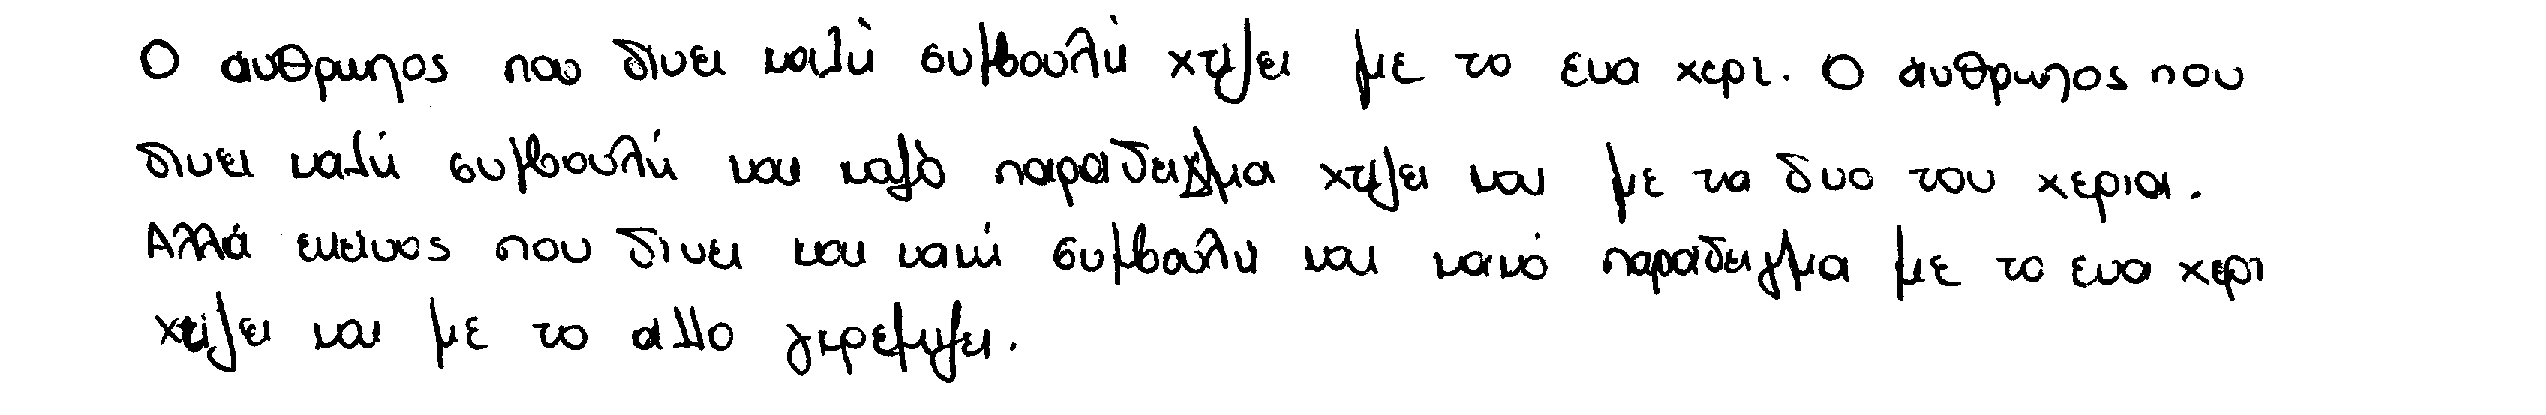 Ο άνθρωπος που δίνει καλή συμβουλή χτίζει με το ενα χερι. Ο άνθρωπος που
δινει καλή συμβουλή και καλό παραδειγμα χτιζει και με τα δυο του χερια.
Αλλά εκεινος που δινει και κακή συμβούλη και κακό παραδειγμα με το ενα χερι
χτίζει και με το αλλο γκρεμιζει.